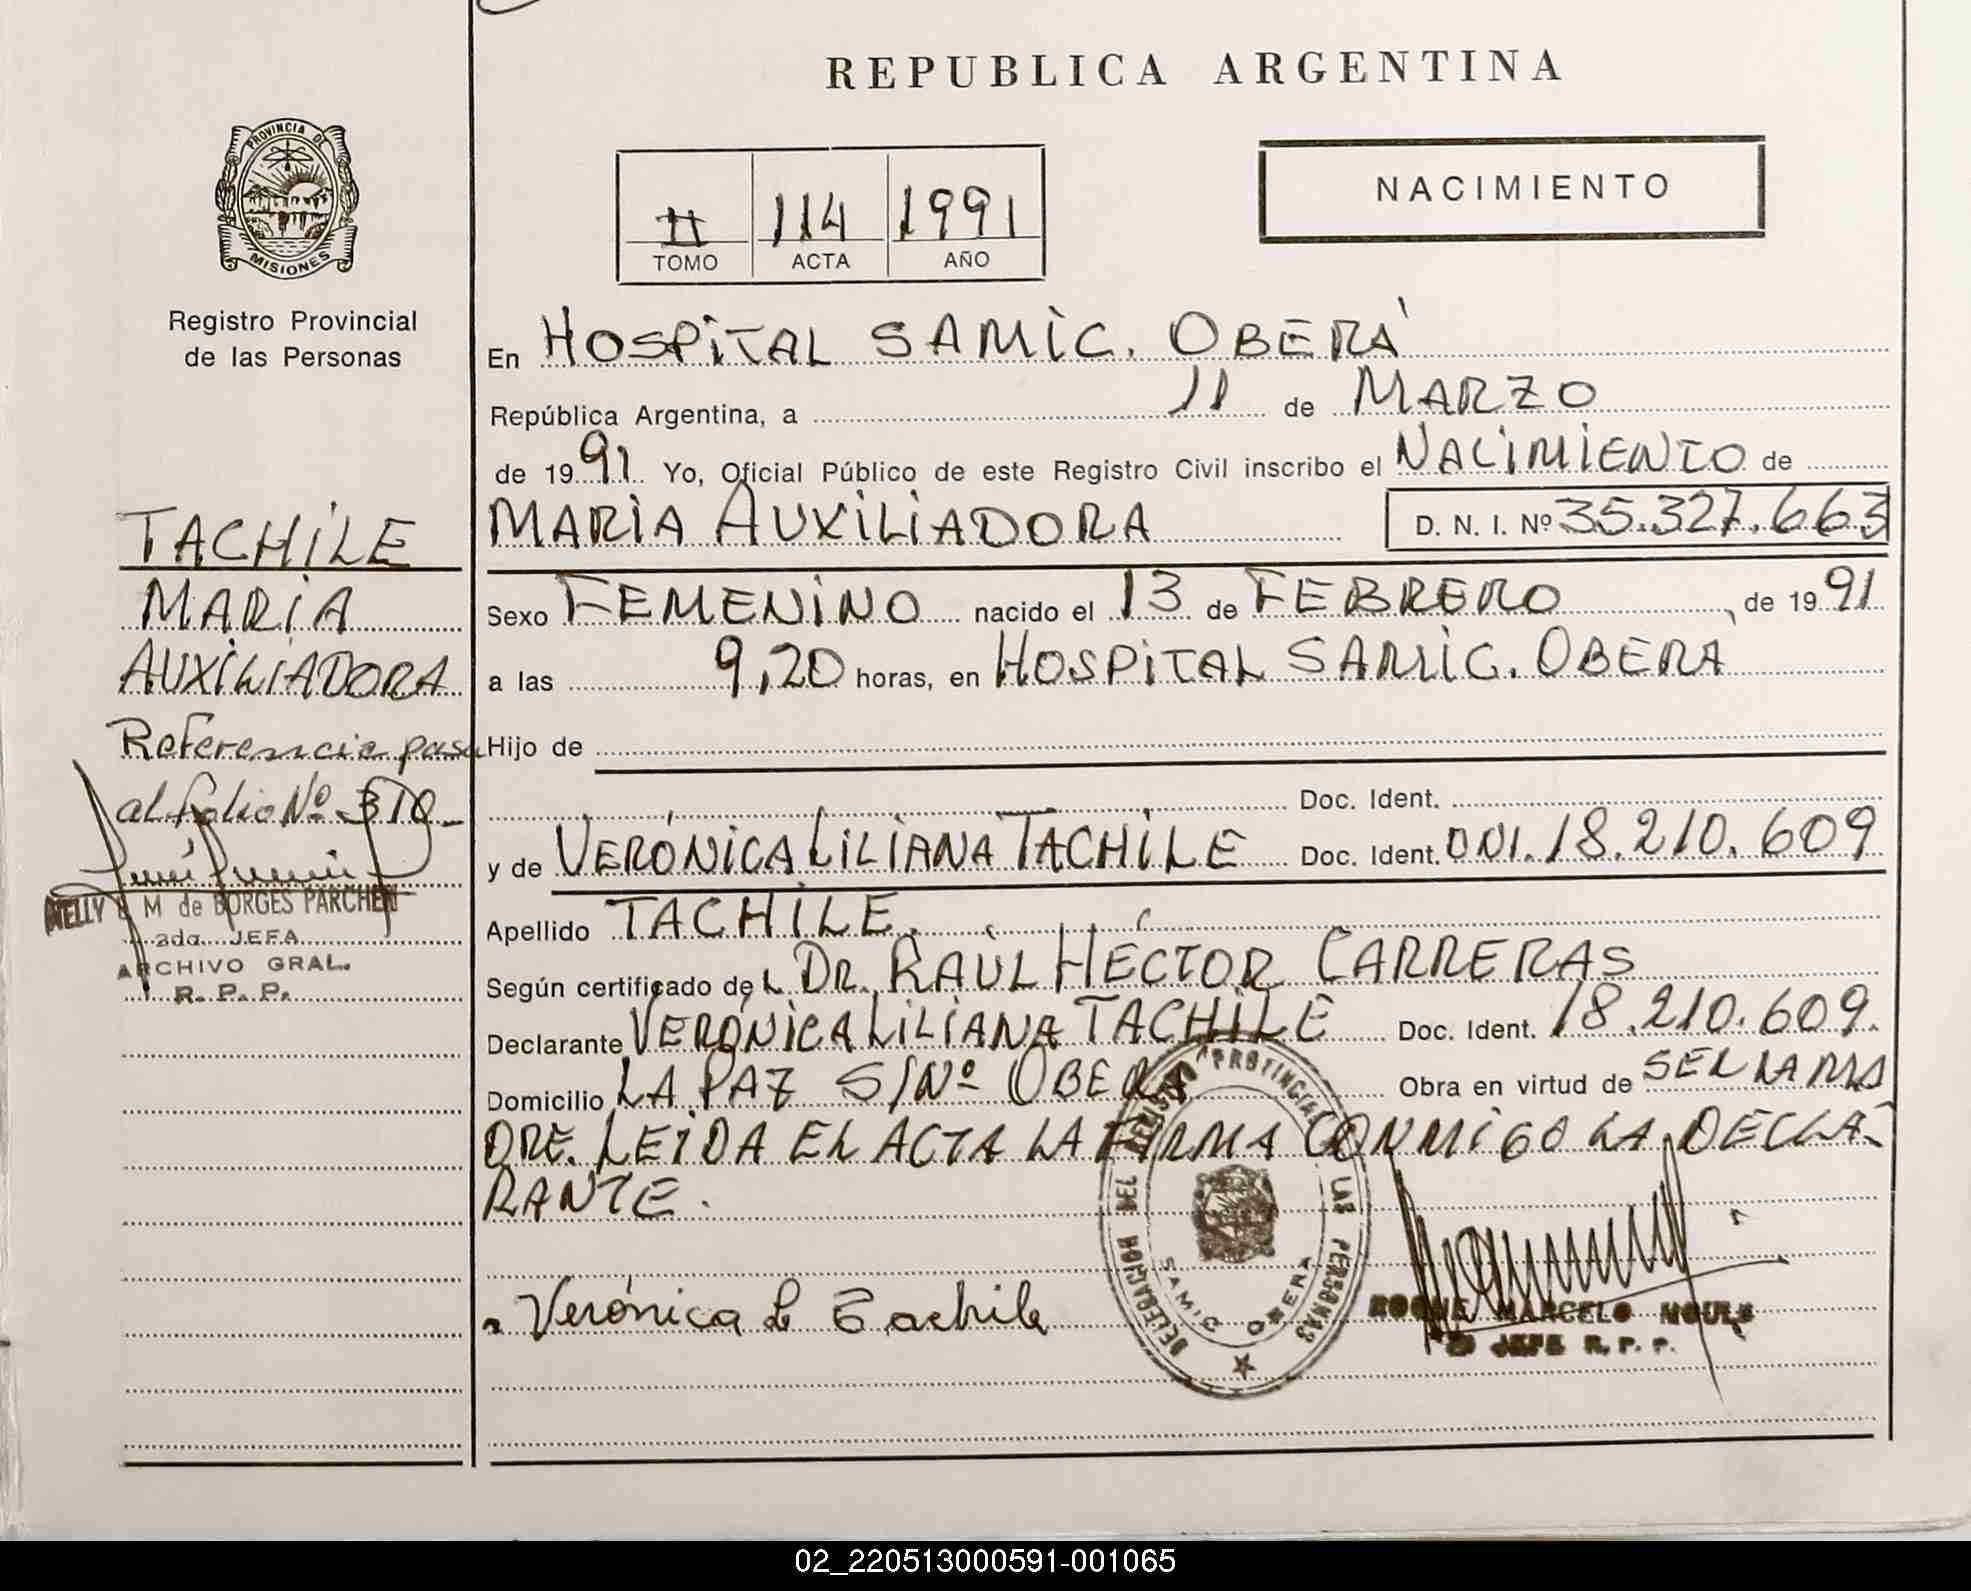 REPUBLICA ARGENTINA
PROVINCIA DE
MISIONES
Registro Provincial
de las Personas
II 114 1991
TOMO ACTA AÑO
NACIMIENTO
En HOSPITAL SAMIC. OBERÁ
República Argentina, a 11 de MARZO
de 1991 Yo, Oficial Público de este Registro Civil inscribo el NACIMIENTO de
MARIA AUXILIADORA D. N. I. Nº 35.327.663
Sexo FEMENINO nacido el 13 de FEBRERO, de 1991
a las 9,20 horas, en HOSPITAL SAMIC. OBERÁ
Hijo de
Doc. Ident.
y de VERÓNICA LILIANA TACHILE Doc. Ident. DNI. 18.210.609
Apellido TACHILE.
Según certificado de L DR. RAÚL HÉCTOR CARRERAS
Declarante VERÓNICA LILIANA TACHILE Doc. Ident. 18.210.609.
Domicilio LA PAZ S/Nº OBERÁ Obra en virtud de SER LA MA
DRE. LEIDA EL ACTA LA FIRMA CONMIGO LA DECLA-
RANTE.
Verónica L Tachile
DELEGACION DEL REGISTRO PROVINCIAL DE LAS PERSONAS
SAMIC OBERA
ROQUE MARCELO
JEFE R. P. P.
TACHILE
MARIA
AUXILIADORA
Referencia pasa
al folio Nº 310-
NELLY M de BORGES PARCHEN
2da. JEFA
ARCHIVO GRAL.
R. P. P.
02_220513000591-001065